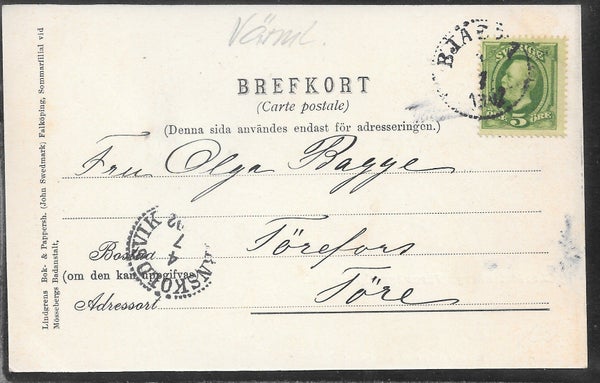 Värml.
BREFKORT
(Carte postale)
(Denna sida användes endast för adresseringen.)
SVERIGE
5 ÖRE
Fru Olga Bagge
Bostad
Törefors
(om den kan uppgifvas)
Adressort
Töre
4
7
02
Lindgrens Bok- & Pappersh. (John Swedmark) Falköping, Sommarfilial vid
Mössebergs Badanstalt.